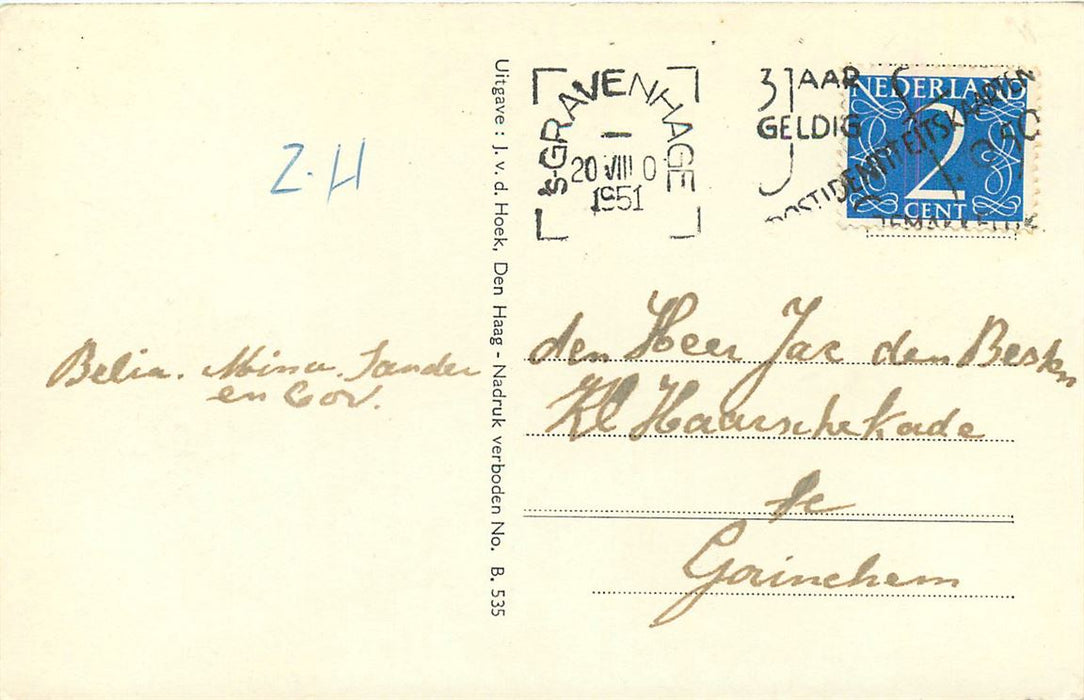 Z.H
Belia. Mina. Sander
en Cor.
Uitgave : J. v. d. Hoek, Den Haag - Nadruk verboden No. B. 535
's-GRAVENHAGE
20 VIII 0
1951
3 JAAR
GELDIG
POSTIDENTITEITSKAARTEN
NEDERLAND
2
CENT
den Heer Jac den Besten
Kl Haarschekade
te
Gorinchem